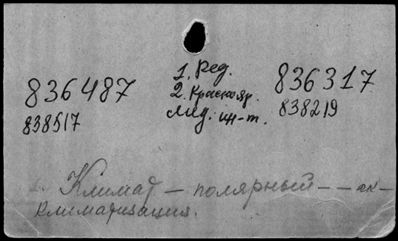 836487
838517
1. Ред.
2. Краснояр.
мед. ин-т.
836317
838219
1. Климат — полярный — — ак-
климатизация.